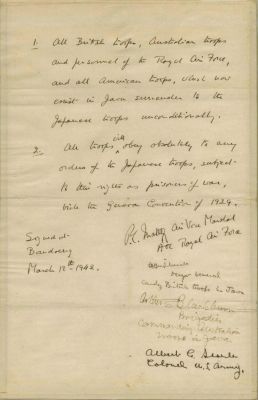 1. All British troops, Australian troops
and personnel of the Royal Air Force,
and all American troops, which now
exist in Java surrender to the
Japanese troops unconditionally.
2. All troops will obey absolutely to any
orders of the Japanese troops, subject
to their rights as prisoners of war,
vide the Geneva Convention of 1929.
Signed at
Bandoeng
March 12th 1942.
Air Vice Marshal
AOC Royal Air Force
Major General
Comdg British troops in Java
Blackburn
Brigadier
Commanding Australian
troops in Java
Albert C. Searle
Colonel U.S. Army.